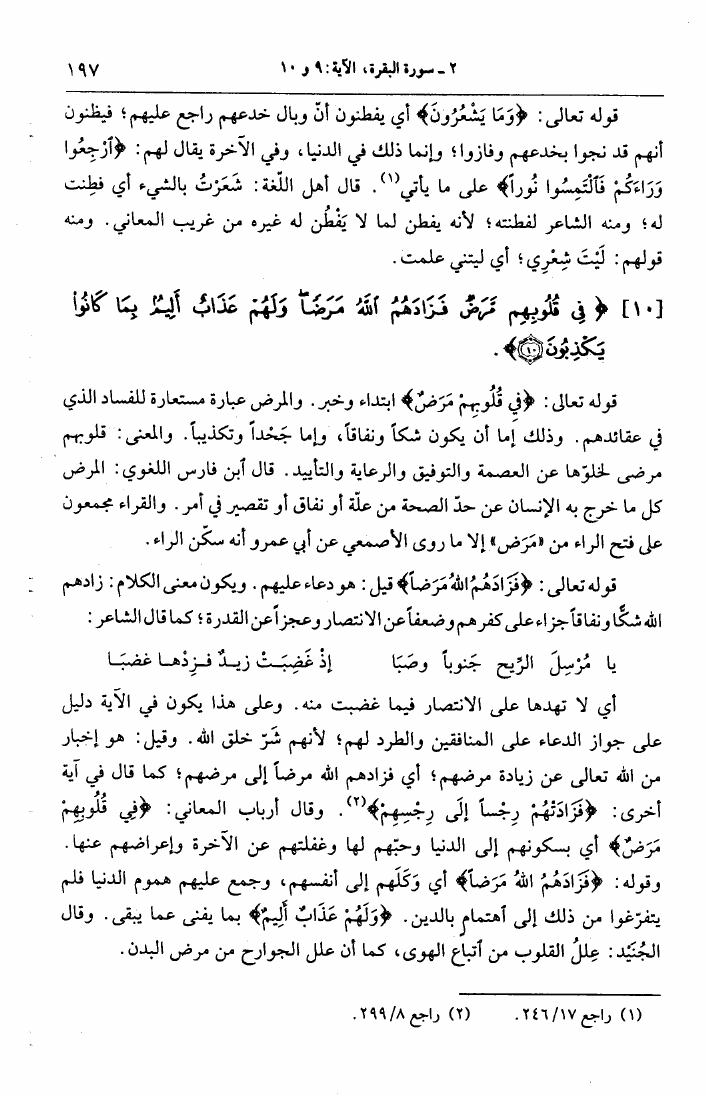 ٢ ـ سورة البقرة، الآية: ٩ و ١٠ ١٩٧
قوله تعالى: ﴿وَمَا يَشْعُرُونَ﴾ أي يفطنون أنّ وبال خدعهم راجع عليهم؛ فيظنون
أنهم قد نجوا بخدعهم وفازوا؛ وإنما ذلك في الدنيا، وفي الآخرة يقال لهم: ﴿ٱرْجِعُوا
وَرَاءَكُمْ فَٱلْتَمِسُوا نُوراً﴾ على ما يأتي(١). قال أهل اللّغة: شَعَرْتُ بالشيء أي فطِنت
له؛ ومنه الشاعر لفطنته؛ لأنه يفطن لما لا يَفْطُن له غيره من غريب المعاني. ومنه
قولهم: لَيْتَ شِعْرِي؛ أي ليتني علمت.
[١٠] ﴿ فِى قُلُوبِهِم مَّرَضٌ فَزَادَهُمُ ٱللَّهُ مَرَضًا ۖ وَلَهُمْ عَذَابٌ أَلِيمٌ بِمَا كَانُوا۟
يَكْذِبُونَ ۝١٠﴾.
قوله تعالى: ﴿فِي قُلُوبِهِمْ مَرَضٌ﴾ ابتداء وخبر. والمرض عبارة مستعارة للفساد الذي
في عقائدهم. وذلك إما أن يكون شكاً ونفاقاً، وإما جَحْداً وتكذيباً. والمعنى: قلوبهم
مرضى لخلوّها عن العصمة والتوفيق والرعاية والتأييد. قال ٱبن فارس اللغوي: المرض
كل ما خرج به الإنسان عن حدّ الصحة من علّة أو نفاق أو تقصير في أمر. والقراء مجمعون
على فتح الراء من «مَرَض» إلا ما روى الأصمعي عن أبي عمرو أنه سكّن الراء.
قوله تعالى: ﴿فَزَادَهُمُ اللهُ مَرَضاً﴾ قيل: هو دعاء عليهم. ويكون معنى الكلام: زادهم
الله شكًّا ونفاقاً جزاء على كفرهم وضعفاً عن الانتصار وعجزاً عن القدرة؛ كما قال الشاعر:
يا مُرْسِلَ الرّيح جَنوباً وصَبَا إذْ غَضِبَتْ زيدٌ فزِدْها غضبَا
أي لا تهدها على الانتصار فيما غضبت منه. وعلى هذا يكون في الآية دليل
على جواز الدعاء على المنافقين والطرد لهم؛ لأنهم شَرّ خلق الله. وقيل: هو إخبار
من الله تعالى عن زيادة مرضهم؛ أي فزادهم الله مرضاً إلى مرضهم؛ كما قال في آية
أخرى: ﴿فَزَادَتْهُمْ رِجْساً إلَى رِجْسِهِمْ﴾(٢). وقال أرباب المعاني: ﴿فِي قُلُوبِهِمْ
مَرَضٌ﴾ أي بسكونهم إلى الدنيا وحبّهم لها وغفلتهم عن الآخرة وإعراضهم عنها.
وقوله: ﴿فَزَادَهُمُ اللهُ مَرَضاً﴾ أي وَكَلَهم إلى أنفسهم، وجمع عليهم هموم الدنيا فلم
يتفرّغوا من ذلك إلى ٱهتمام بالدين. ﴿وَلَهُمْ عَذَابٌ أَلِيمٌ﴾ بما يفنى عما يبقى. وقال
الجُنَيْد: عِللُ القلوب من ٱتباع الهوى، كما أن علل الجوارح من مرض البدن.
(١) راجع ٢٤٦/١٧. (٢) راجع ٢٩٩/٨.